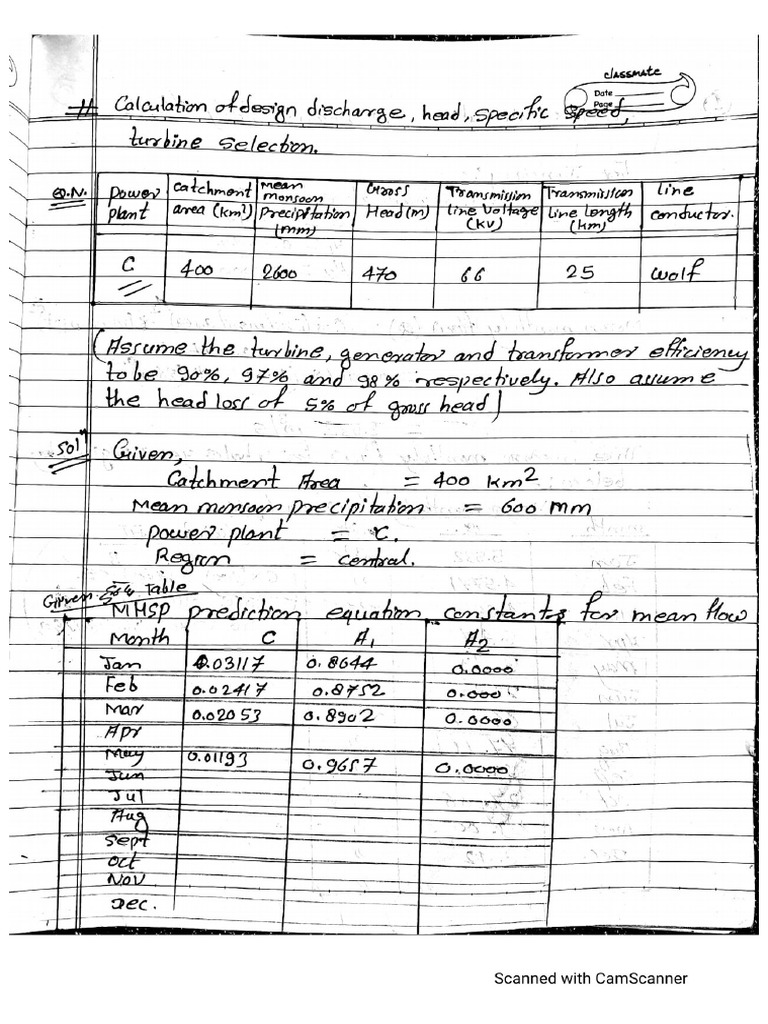 classmate
Date
Page
11 Calculation of design discharge, head, specific speed,
turbine selection.
Q.N.
Power plant | Catchment area (km²) | Mean monsoon precipitation (mm) | Gross Head (m) | Transmission line voltage (KV) | Transmission line Length (km) | line conductor.
C | 400 | 2600 | 470 | 66 | 25 | wolf
(Assume the turbine, generator and transformer efficiency
to be 90%, 97% and 98% respectively. Also assume
the head loss of 5% of gross head)
Solⁿ Given,
Catchment Area = 400 km²
Mean monsoon precipitation = 600 mm
Power plant = C.
Region = central.
Given Table
MHSP prediction equation constants for mean flow
Month C A₁ A₂
Jan 0.03117 0.8644 0.0000
Feb 0.02417 0.8752 0.000
Mar 0.02053 0.8902 0.0000
Apr
May 0.01193 0.9657 0.0000
Jun
Jul
Aug
Sept
Oct
Nov
Dec.
Scanned with CamScanner